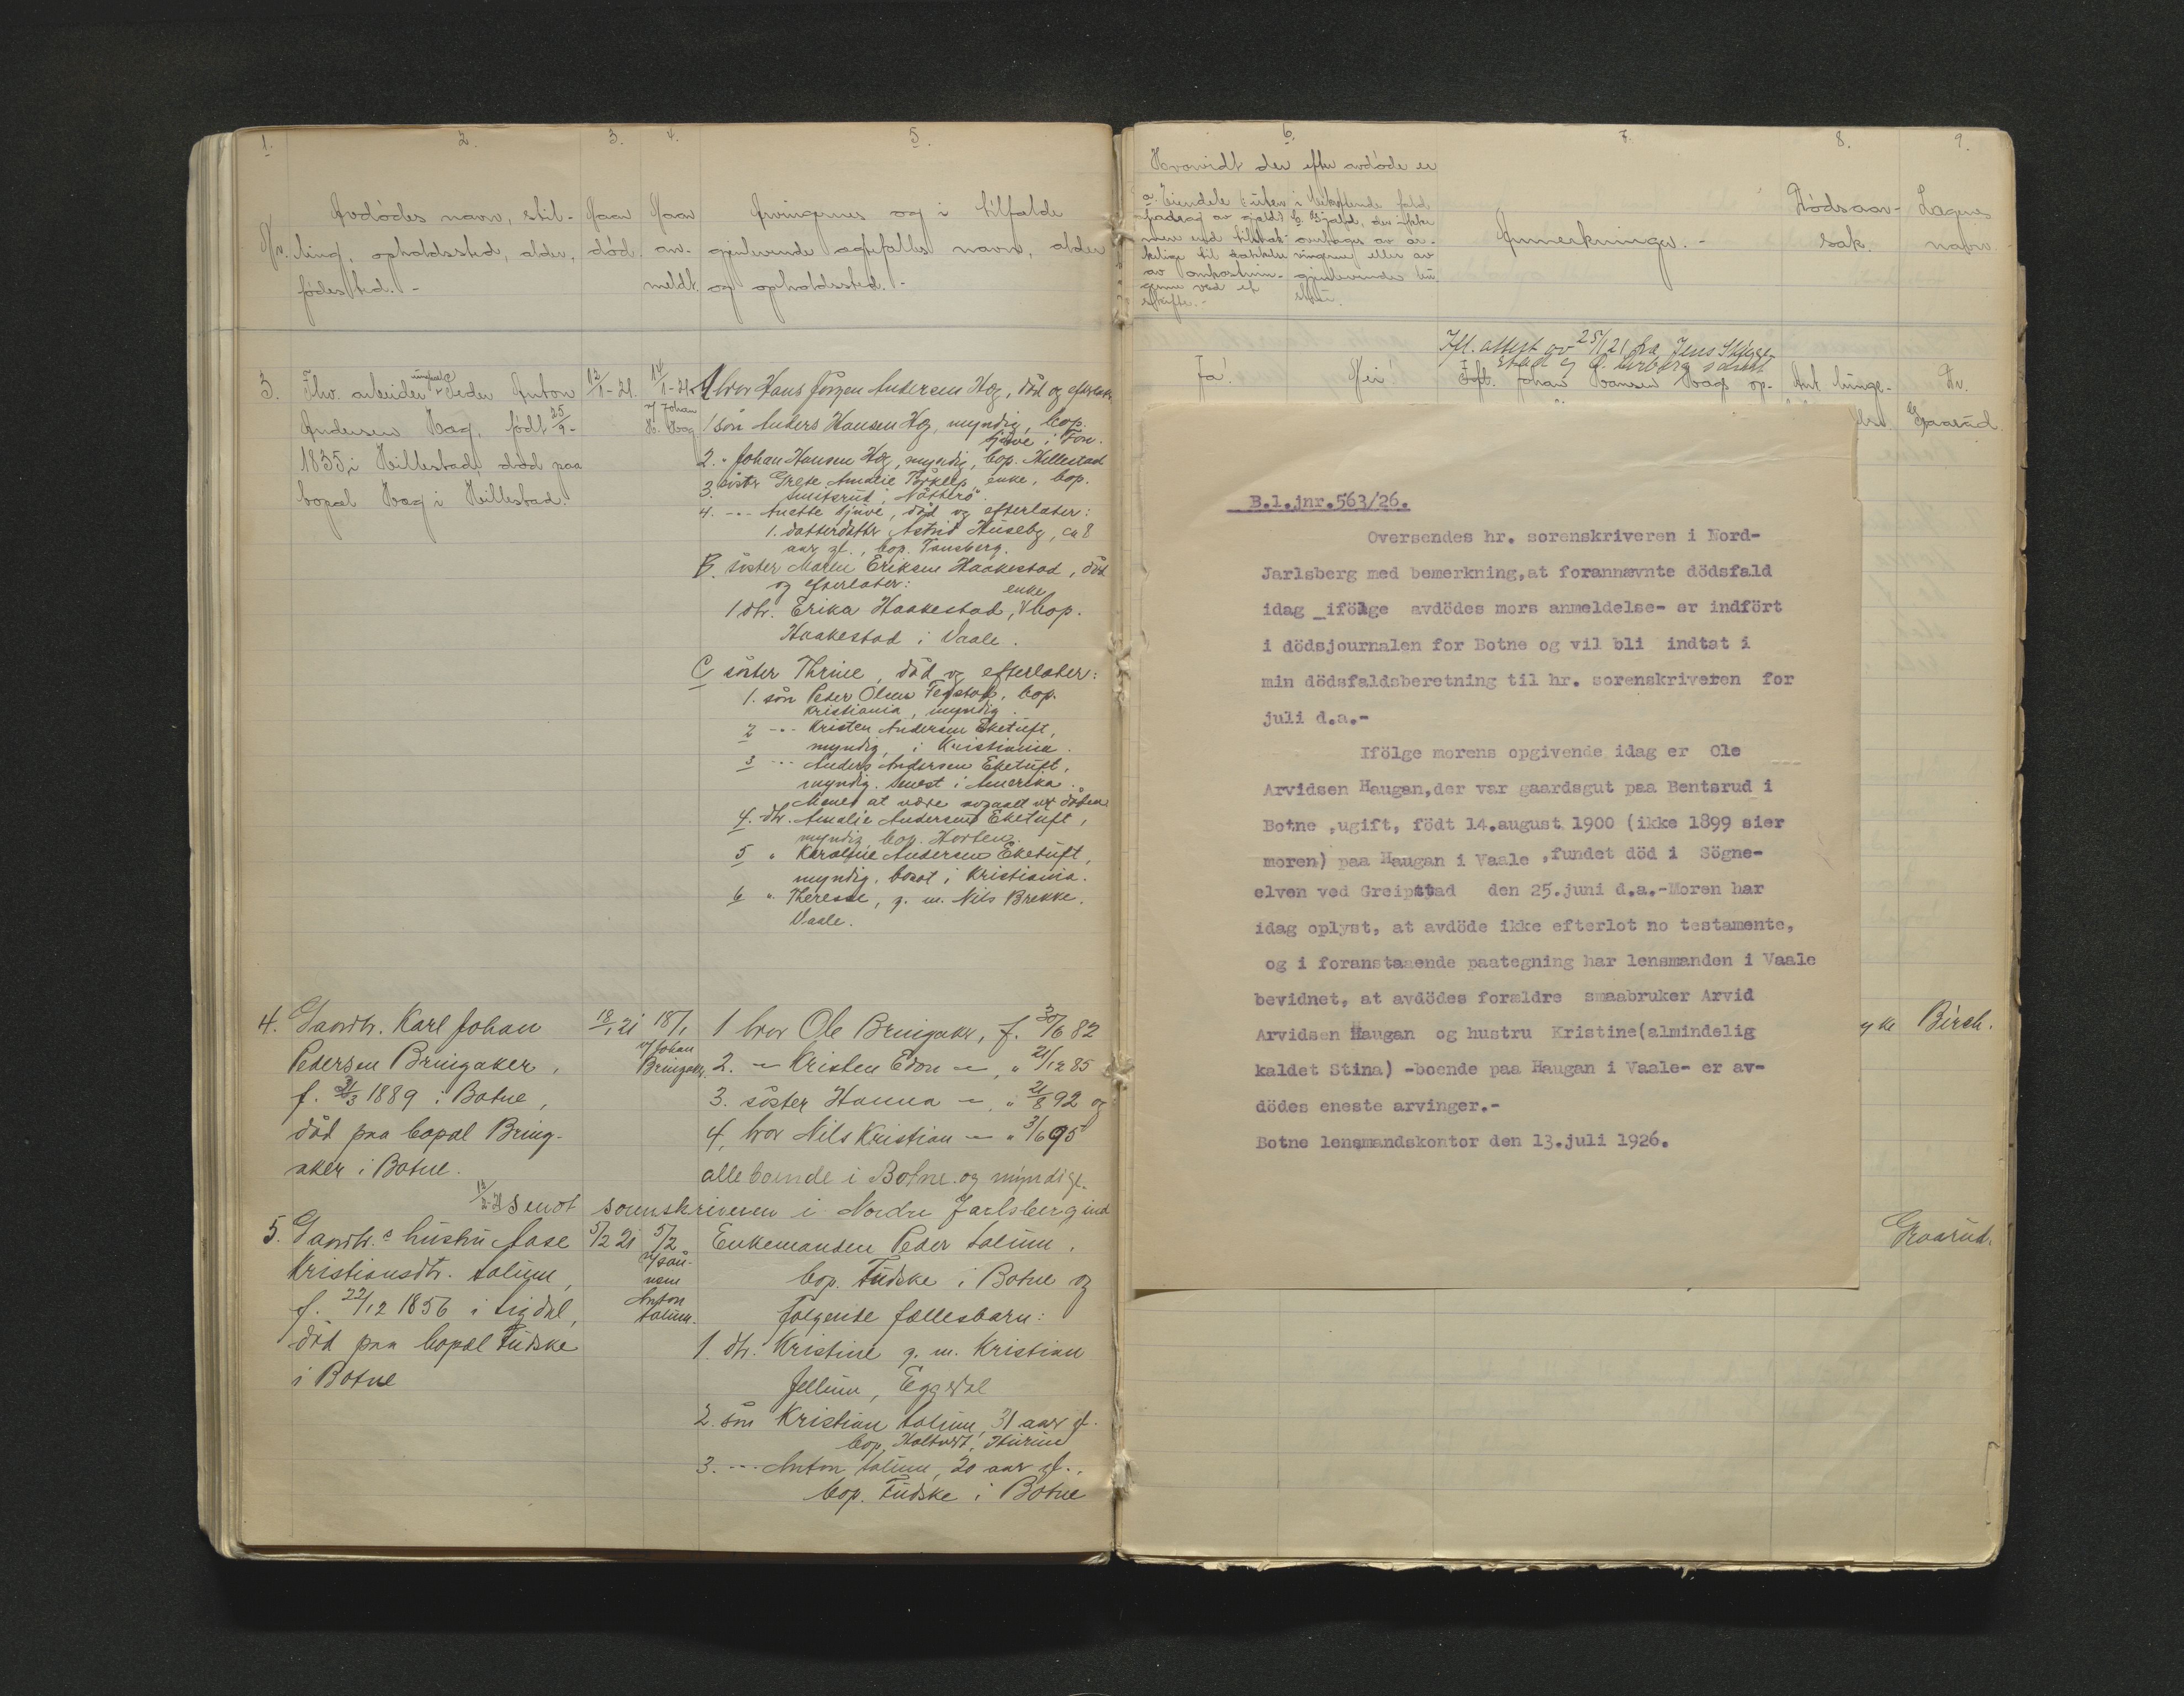 1.
2.
3.
4.
5.
Nr.
Avdödes navn, stil-
ling, opholdssted, alder,
födested.-
Naar
död.
Naar
an-
meldt.
Arvingernes og i tilfælde
gjenlevende ægtefælles navn, alder
og opholdssted.-
3.
Fhv. arbeider ungkar Peder Anton
Andersen Hag, födt 25/9-
1835 i Hillestad, död paa
bopæl Hag i Hillestad.
12/1-21.
14/1-21
v/ Johan
H. Hag
A bror Hans Jörgen Andersen Hag, död og efterlater
1 sön Anders Hansen Hag, myndig, bop.
Djuve i Fon.
2. " Johan Hansen Hag, myndig, bop. Hillestad
3. söster Grete Amalie enke, bop.
Nötterö.
4. -"- Anette Djuve, död og efterlater:
1. datterdatter Astrid Huseby, ca 8
aar gl., bop. Tønsberg.
B. söster Maren Eriksen Haakestad, död
og efterlater:
1 dtr. Erika Haakestad, enke, bop.
Haakestad i Vaale.
C söster Thrine, död og efterlater:
1. sön Peder Olsen bop.
Kristiania, myndig.
2 -"- Kristen Andersen Eketuft,
myndig, i Kristiania.
3 -"- Anders Andersen Eketuft,
myndig, senest i Amerika.
Menes at være avgaat ved döden
4. dtr. Amalie Andersen Eketuft,
myndig, bop. Horten.
5 " Karoline Andersen Eketuft,
myndig, bosat i Kristiania.
6 " Therese, g. m. Nils Brekke,
Vaale.
4.
Gaardbr. Karl Johan
Pedersen Bringaker,
f. 1889 i Botne,
död paa bopæl Bring-
aker i Botne.
18/1 21
18/1
v/ Johan
Bringaker.
1 bror Ole Bringaker, f. 30/6 82
2. - Kristen Edon -, " 21/12 85
3. söster Hanna -, " 21/8 92 og
4. bror Nils Kristian - " 3/6 95
alle boende i Botne og myndige.
12/2-21 sendt sorenskriveren i Nordre Jarlsberg ind
5.
Gaardbr.s hustru Aase
Kristiansdtr. Solum,
f. 22/12 1856 i Sigdal,
död paa bopæl Fudske
i Botne
5/2 21
5/2
v/ sön-
nen
Anton
Solum.
Enkemanden Peder Solum,
bop. Fudske i Botne og
følgende fællesbarn:
1. dtr. Kristine g. m. Kristian
Jellum, Eggedal
2. sön Kristian Solum, 31 aar gl.
bop. Hurum
3. -"- Anton Solum, 20 aar gl.,
bop. Fudske i Botne
6.
7.
8.
9.
Hvorvidt der efter avdöde er
a. Eiendele uten
fradrag av gjæld
mere end tilstræk-
kelige til dækkelse
av omkostnin-
gerne ved et
skifte.-
i bekræftende fald
b. Gjæld, der ikke
overtages av ar-
vingerne eller av
gjenlevende
Anmerkninger.-
Dödsaar-
sak.
Lægens
navn.
Ja.
Nei
Ifl. attest av 25/1 21 fra Jens
stad og O. samt
Ifl. Johan Hansen Hags op-
Akt. lunge-
Dr.
Graarud.
B.l.jnr.563/26.
Oversendes hr. sorenskriveren i Nord-
Jarlsberg med bemerkning,at forannævnte dödsfald
idag _ifölge avdödes mors anmeldelse- er indfört
i dödsjournalen for Botne og vil bli indtat i
min dödsfaldsberetning til hr. sorenskriveren for
juli d.a.-
Ifölge morens opgivende idag er Ole
Arvidsen Haugan,der var gaardsgut paa Bentsrud i
Botne ,ugift, födt 14.august 1900 (ikke 1899 sier
moren) paa Haugan i Vaale ,fundet död i Sögne-
elven ved Greipstad den 25.juni d.a.-Moren har
idag oplyst, at avdöde ikke efterlot no testamente,
og i foranstaaende paategning har lensmanden i Vaale
bevidnet, at avdödes forældre smaabruker Arvid
Arvidsen Haugan og hustru Kristine(almindelig
kaldet Stina) -boende paa Haugan i Vaale- er av-
dödes eneste arvinger.-
Botne lensmandskontor den 13.juli 1926.
yke
Birch.
Graarud.